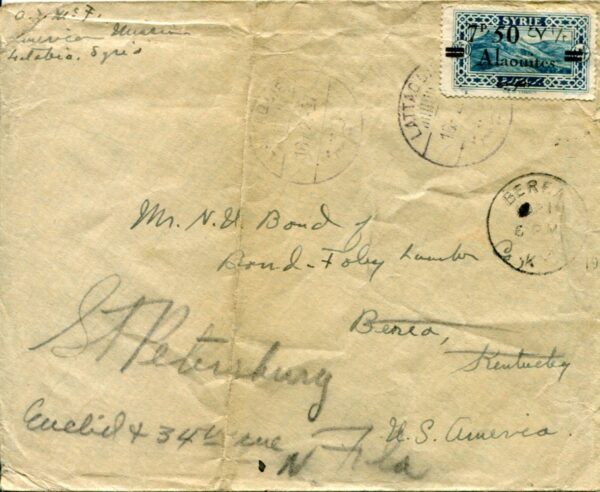 American Mission
Latakia, Syria
SYRIE
7P.50
Alaouites
LATTAQ
BEREA
6 PM
KY
Mr. N. U. Bond of
Bond-Foley Lumber
Berea,
Kentucky
U.S. America.
St Petersburg
Euclid & 34th ave
N. Fla